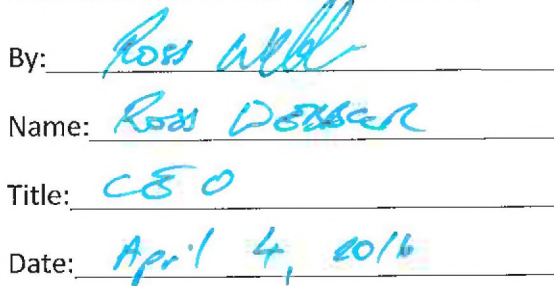 By: Ross Webb
Name: Ross Webber
Title: CEO
Date: April 4, 2016